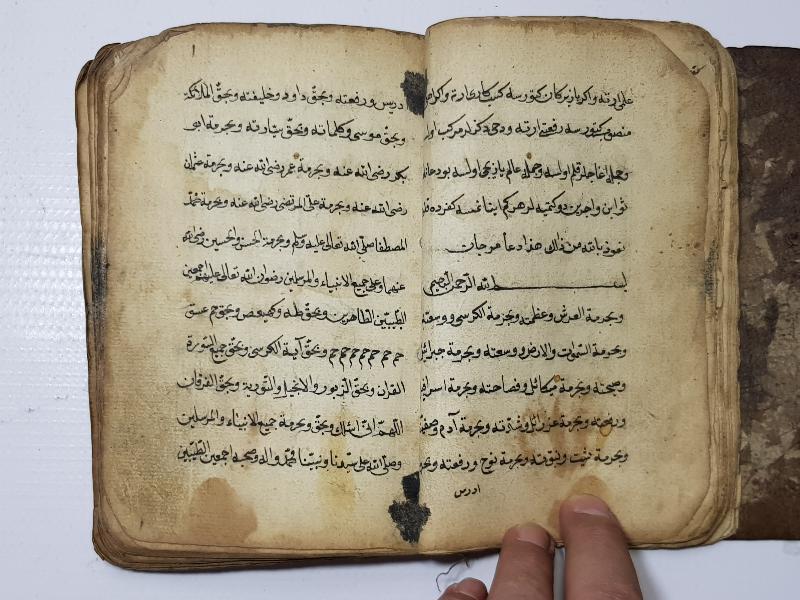 على ارته واكر يازيركان كتورسه
منصوب كتورسه رفعت ارته ودخى دكزلر مركب اولسه
وجمله اغاجلر قلم اولسه وجمله عالم يازيجى اولسه بو دعانك
ثوابن واجرين دوكتميه لر هر كم اينانمسه كفردندر
نعوذ بالله من ذلك هذا دعا مرجان
بسم الله الرحمن الرحيم
وبحرمة العرش وعظمته وبحرمة الكرسى ووسعته
وبحرمة السموات والارض ووسعته وبحرمة جبرائل
وصيحته وبحرمة ميكائل وفصاحته وبحرمة اسرافيل
ونفخته وبحرمة عزرائل وقدرته وبحرمة آدم وصفوته
وبحرمة شيت ونبوته وبحرمة نوح ورفعته وبحق
ادرس
دريس ورفعته وبحق داود وخليفته وبحق الملائكة
وبحق موسى وكلماته وبحق بشارته وبحرمة ابى
بكر رضى الله عنه وبحرمة عمر رضى الله عنه وبحرمة عثمان
رضى الله عنه وبحرمة على المرتضى رضى الله عنه وبحرمة محمد
المصطفا صلى الله تعالى عليه وسلم وبحرمة الحسن والحسين رضى الله
عنهما وعلى جميع الانبياء والمرسلين رضوان الله تعالى عليهم اجمعين
الطيبين الطاهرين وبحق طه وكهيعص وبحق حم عسق
حم حم حم حم حم حم حم وبحق آية الكرسى وبحق جميع السورة
القرأن وبحق الزبور والانجيل والتورية وبحق الفرقان
اللهم انى اسئلك وبحق وبحرمة جميع الانبياء والمرسلين
وصلى الله على سيدنا ونبينا محمد واله وصحبه اجمعين الطيبين